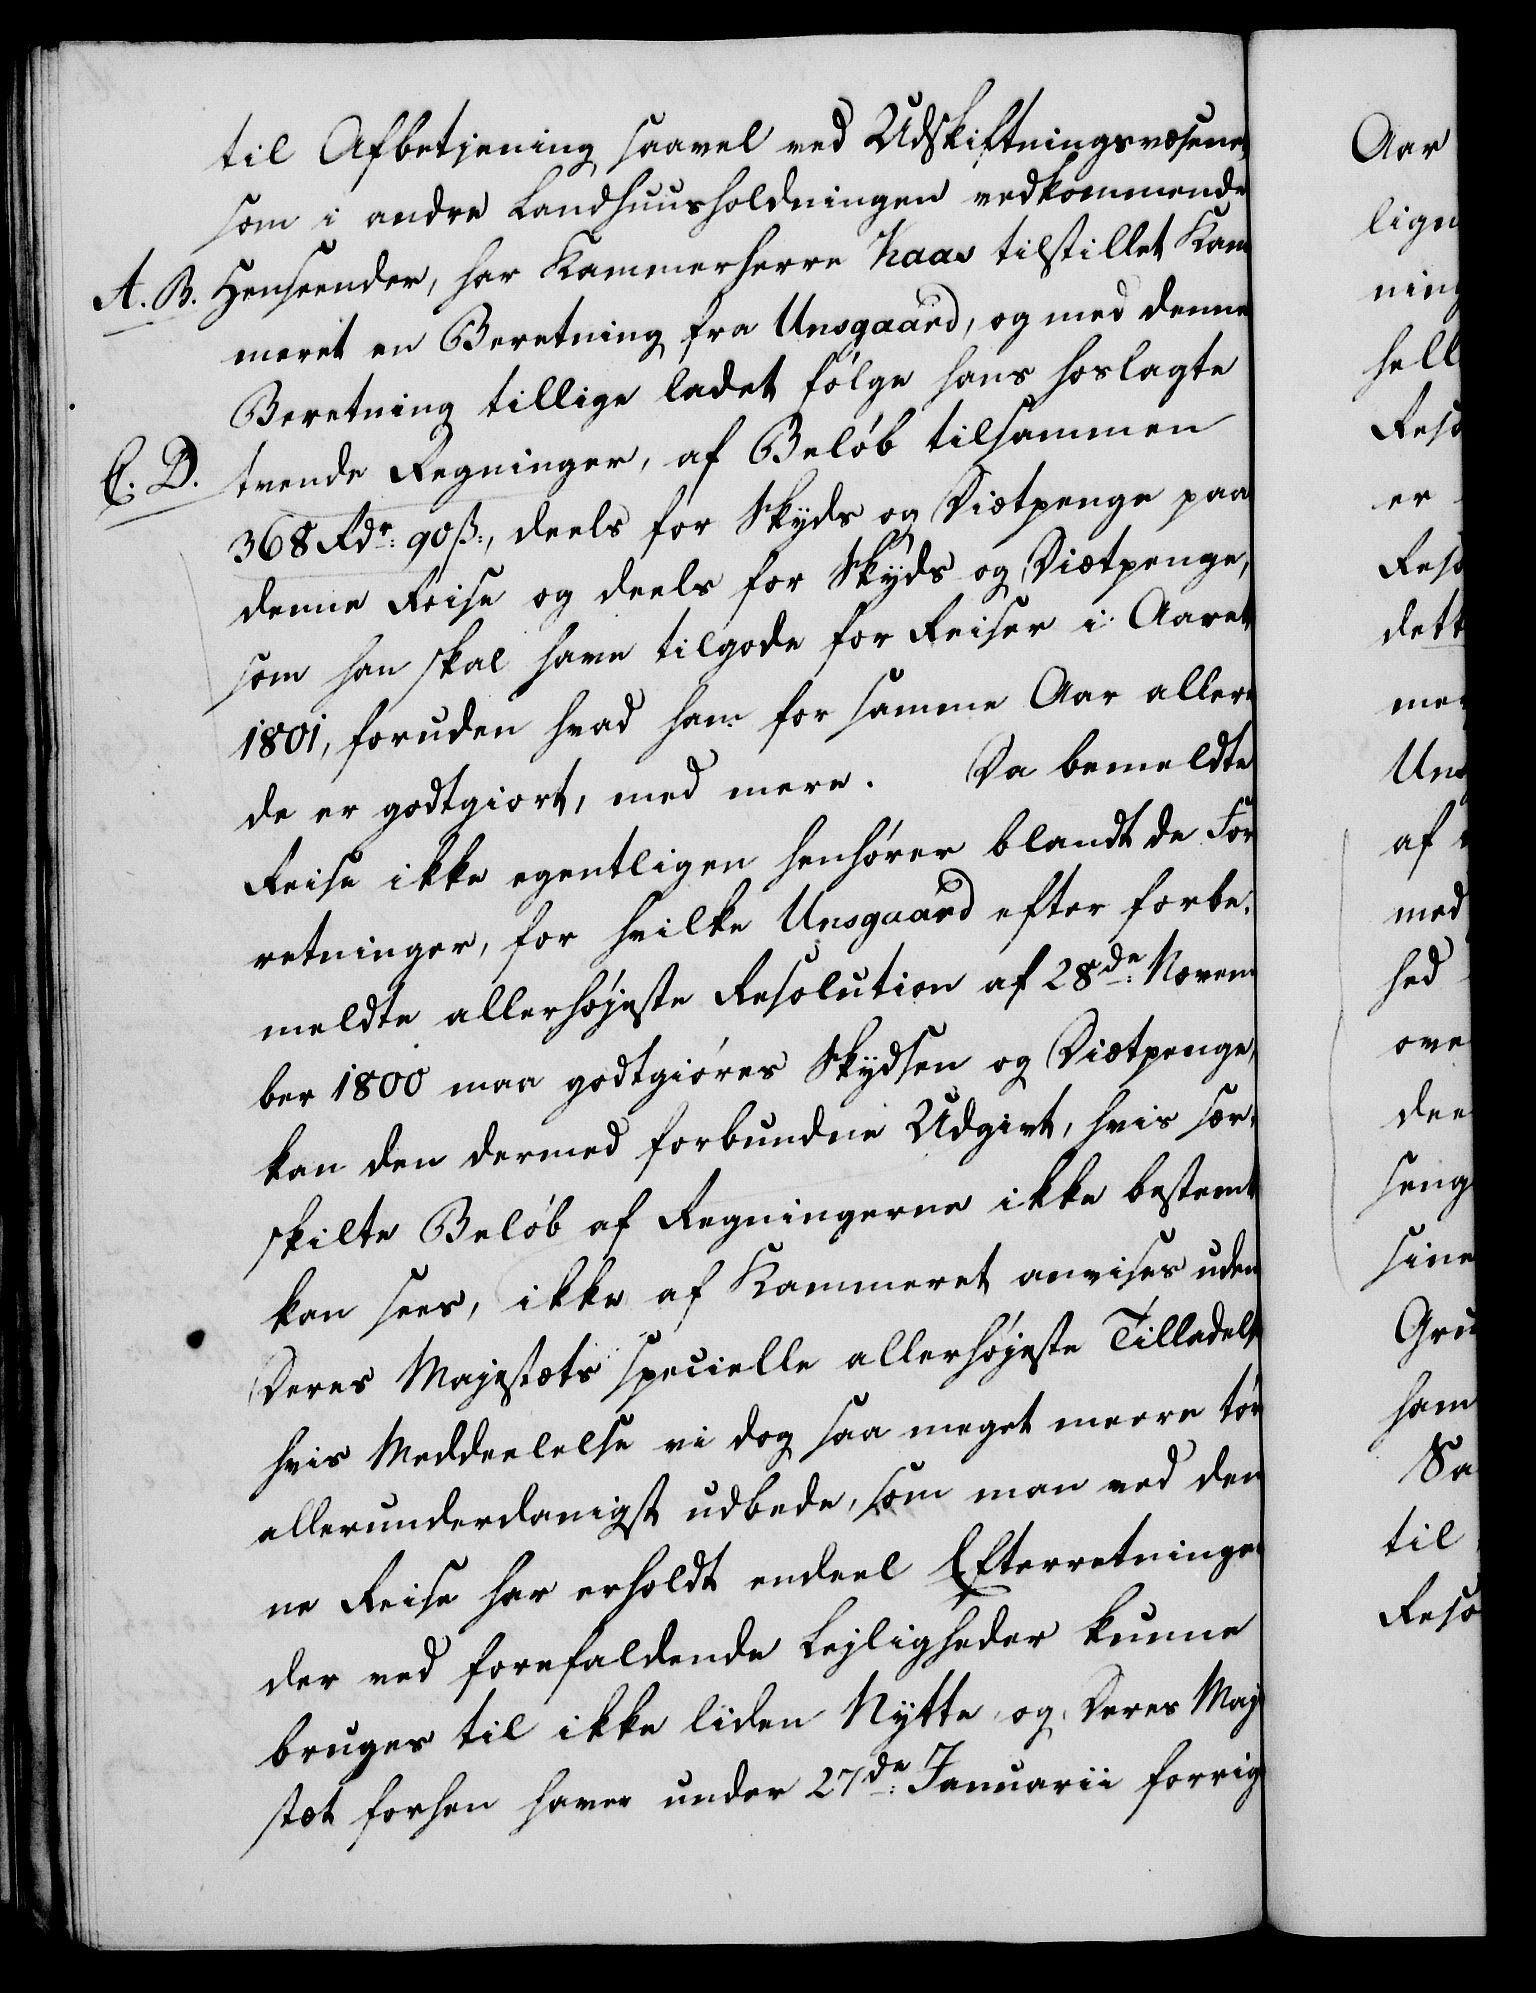 til Afbetjening saavel ved Udskiftningsvæsenet
som i andre Landhuusholdningen vedkommende
A. B. Henseender, har Kammerherre Kaas tilstillet Kam
meret en Beretning fra Unsgaard, og med denne
Beretning tillige ladet følge hans hoslagte
C. D. tvende Regninger, af Beløb tilsammen
368 Rdr: 90ß:, deels for Skyds og Diætpenge paa
denne Reise og deels for Skyds og Diætpenge,
som han skal have tilgode for Reiser i Aaret
1801, foruden hvad ham for samme Aar aller=
de er godtgiort, med mere. Da bemeldte
Reise ikke egentligen henhører blandt de For
retninger, for hvilke Unsgaard efter forbe=
meldte allerhøjeste Resolution af 28de: Novem
ber 1800 maa godtgiøres Skydsen og Diætpenge,
kan den dermed forbundne Udgivt, hvis sær=
skilte Beløb af Regningerne ikke bestemt
kan sees, ikke af Kammeret anvises uden
Deres Majestæts specielle allerhøjeste Tilladels
hvis Meddeelelse vi dog saa meget meere tør
allerunderdanigst udbede, som man ved den
ne Reise har erholdt endeel Efterretninger
der ved forefaldende Lejligheder kunne
bruges til ikke liden Nytte, og Deres Maj
stæt forhen haver under 27de: Januarii forrig
Aar
lign
ning
hell
Reso
er
Reso
dett
me
Uns
af
med
hed
ove
dee
seng
sine
Gru
ham
Sa
til
Reso